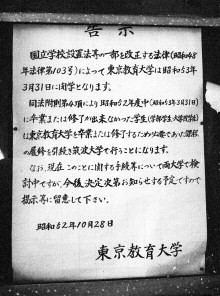 告示
国立学校設置法等の一部を改正する法律(昭和48
年法律第103号)によって東京教育大学は昭和53年
3月31日に閉学となります。
同法附則第4項により昭和52年度中(昭和53年3月31日)
に卒業または修了が出来なかった学生(学部学生・大学院学生)
は東京教育大学を卒業または修了するため必要であった課程
の履修を引続き筑波大学で行うことになります。
なお、現在このことに関する手続等について両大学で検
討中ですが、今後決定次第お知らせする予定ですので
掲示等に留意して下さい。
昭和52年10月28日
東京教育大学